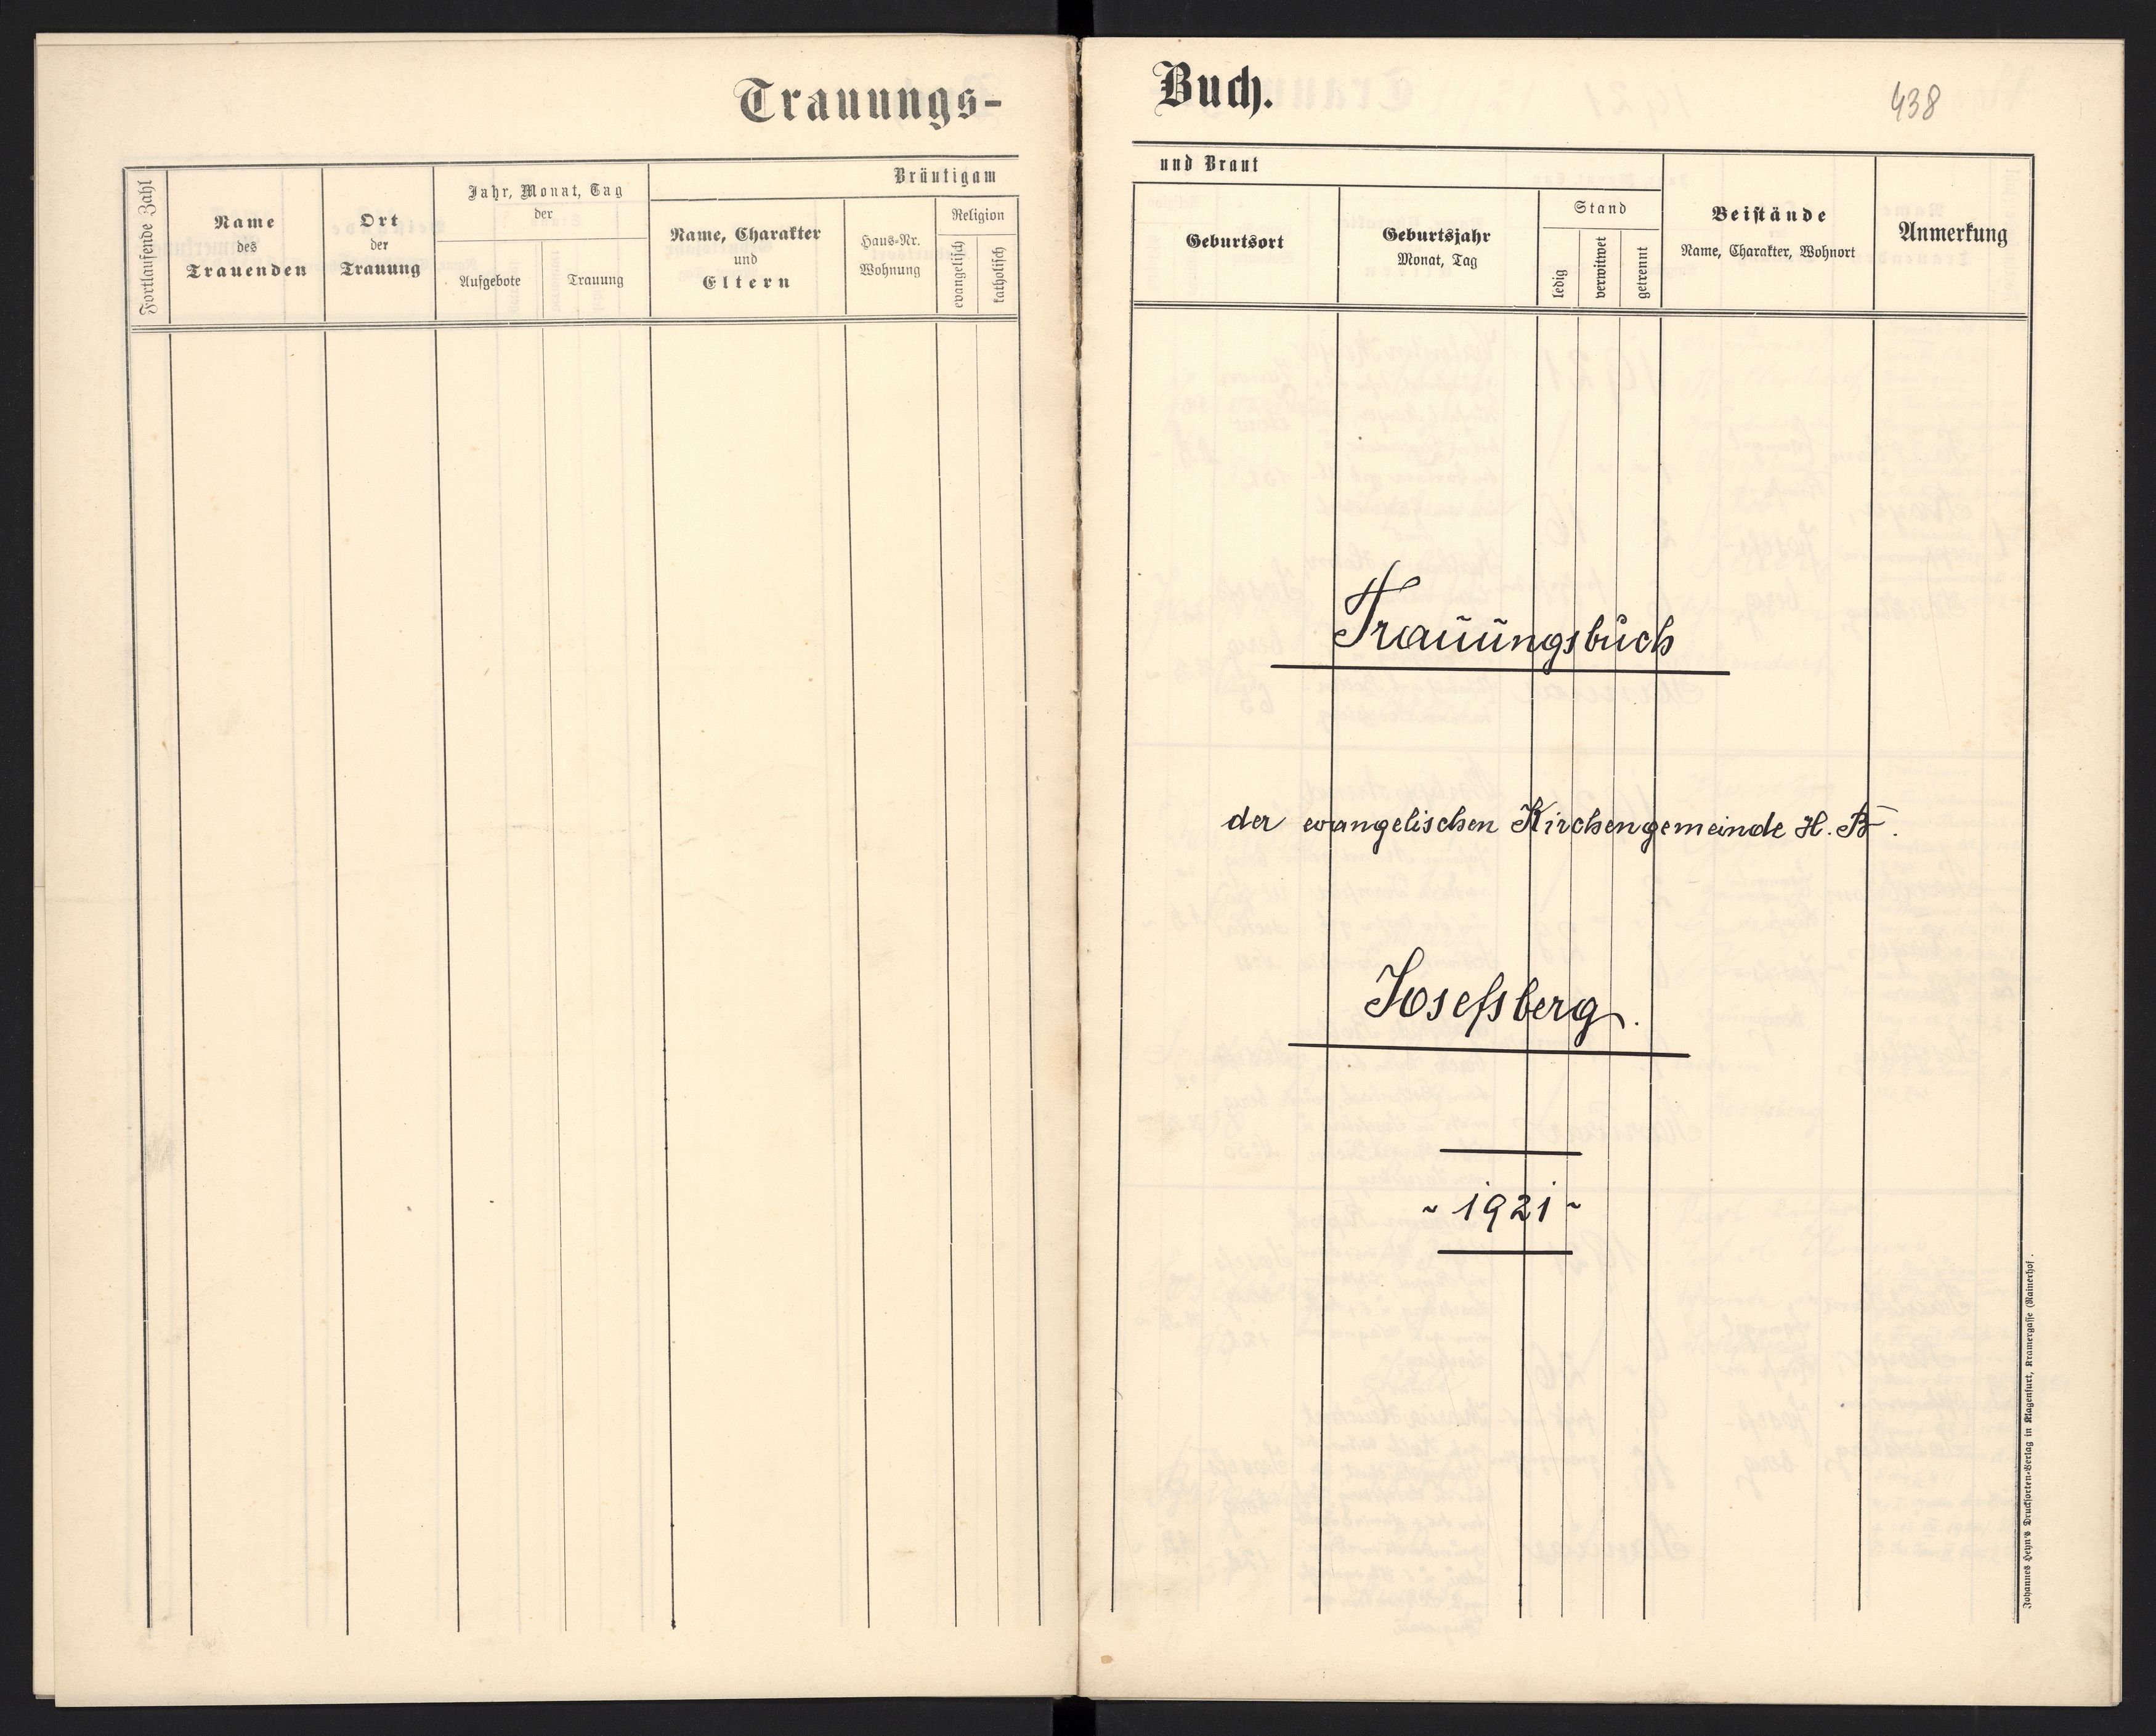 Trauungs-
Fortlaufende Zahl
Name
des
Trauenden
Ort
der
Trauung
Jahr, Monat, Tag
der
Aufgebote
Trauung
Bräutigam
Name, Charakter
und
Eltern
Haus-Nr.
Wohnung
Religion
evangelisch
katholisch
Buch.
438
und Braut
Geburtsort
Geburtsjahr
Monat, Tag
Stand
ledig
verwitwet
getrennt
Beistände
Name, Charakter, Wohnort
Anmerkung
Trauungsbuch
der evangelischen Kirchengemeinde H. B.
Josefsberg.
~ 1921 ~
Johannes Heyn's Drucksorten-Verlag in Klagenfurt, Kramergasse (Rainerhof.